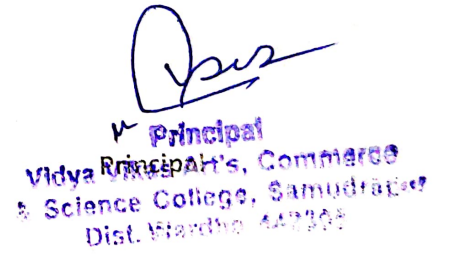 Principal
Principal
Vidya Vikas Art's, Commerce
& Science College, Samudrapur
Dist. Wardha